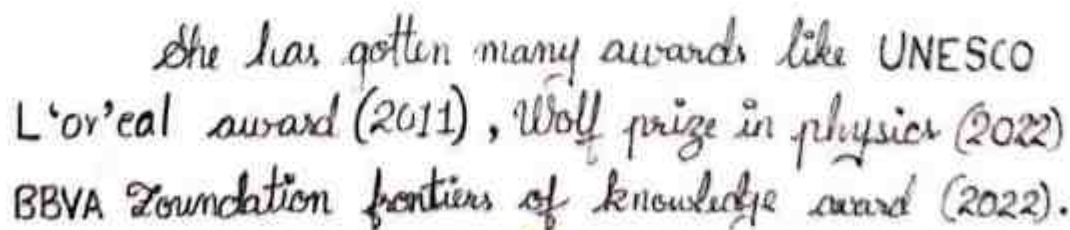 She has gotten many awards like UNESCO
L'or'eal award (2011), Wolf prize in physics (2022)
BBVA Foundation frontiers of knowledge award (2022).